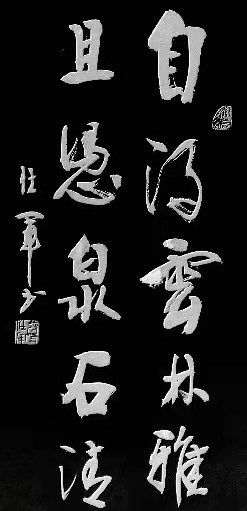 自得雲林雅
且憑泉石清
任軍书